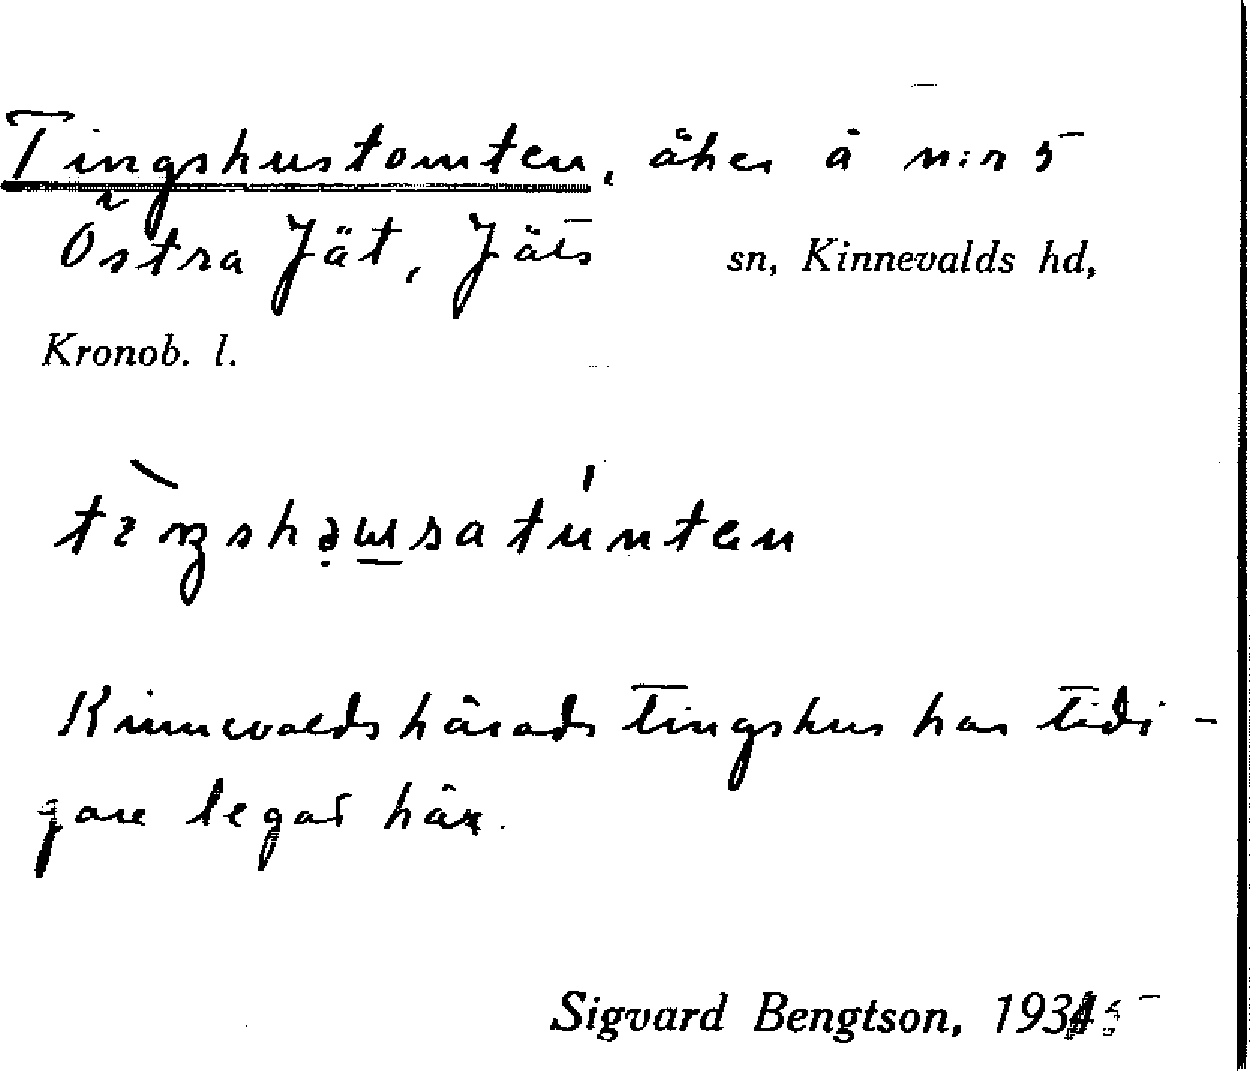 Tingshustomten, åker å n:r 5
Östra Jät, Jäts sn, Kinnevalds hd,
Kronob. l.
Kinnevalds härads tingshus har tidi-
gare legat här.
Sigvard Bengtson, 1935